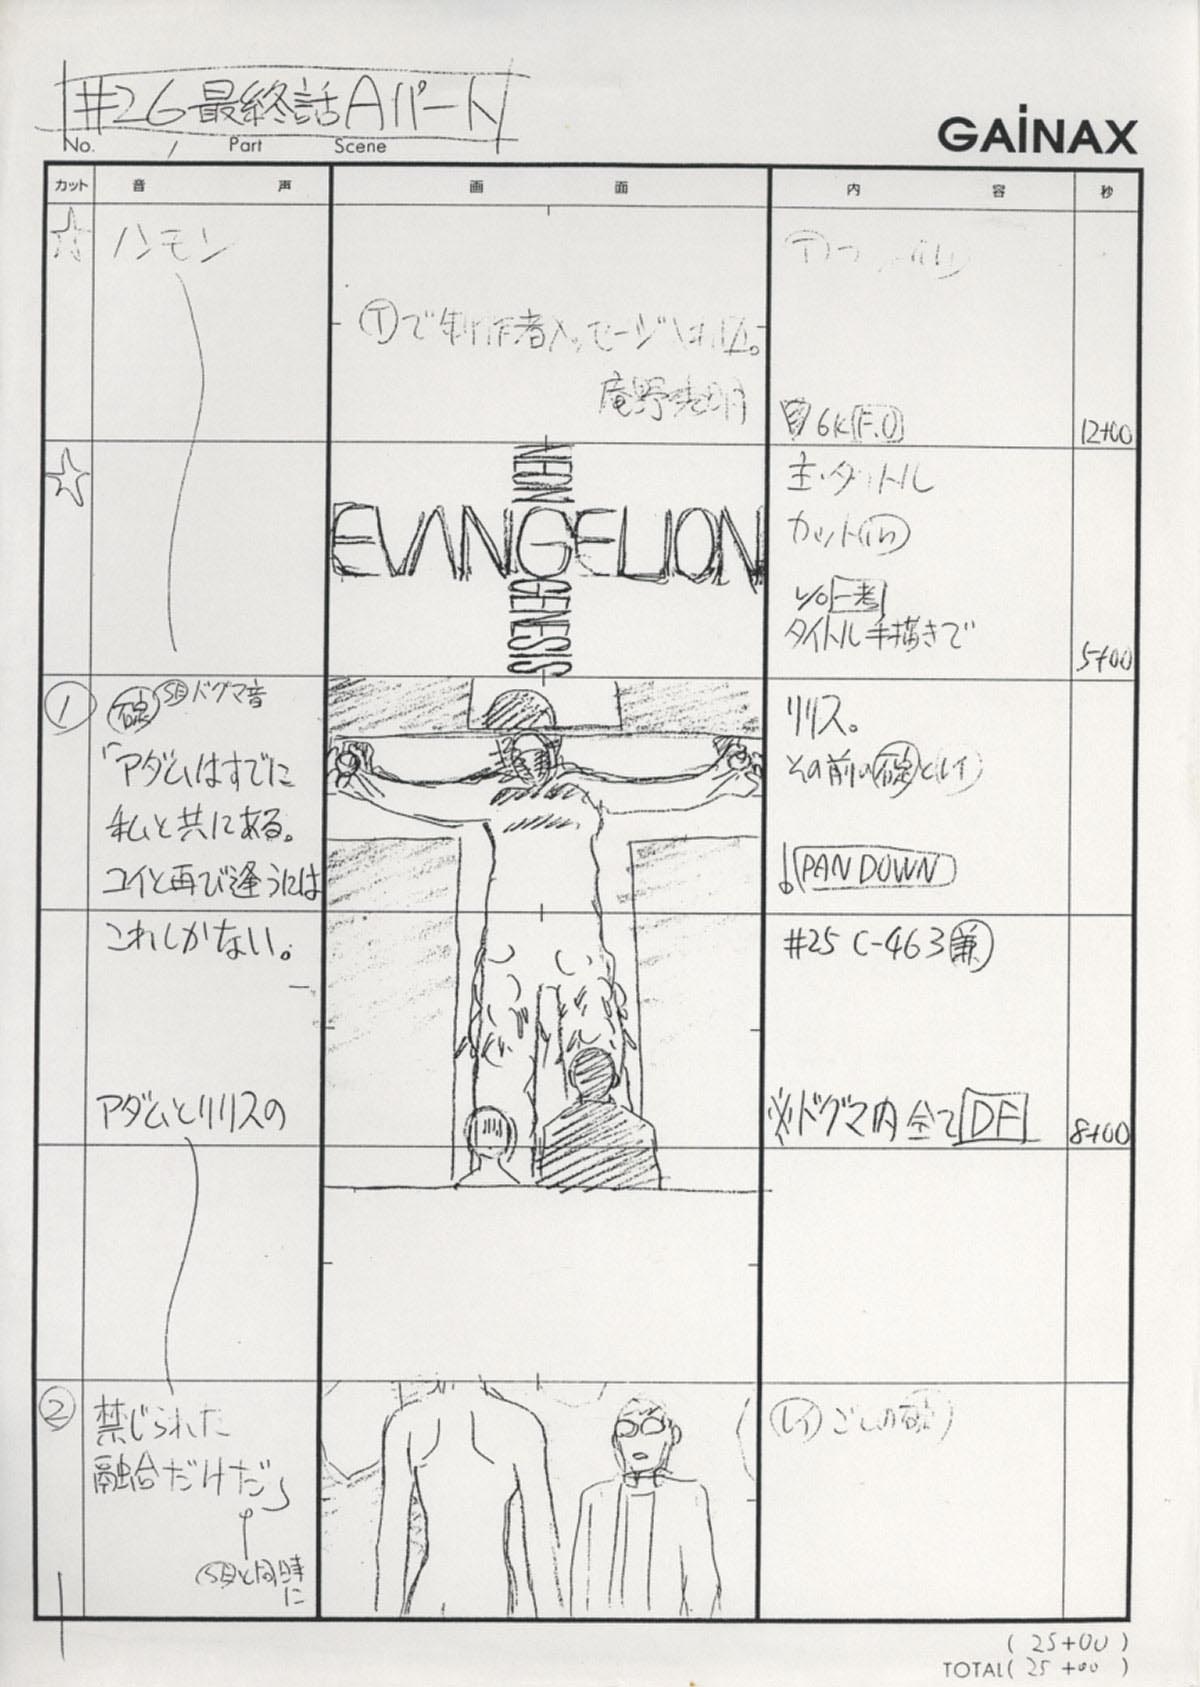 #26 最終話 Aパート
No. 1 Part Scene
GAiNAX
カット 音 声 画 面 内 容 秒
ハモン
Ⓣで制作者メッセージ
庵野秀明
6K F.O
12+00
NEON
EVANGELION
GENESIS
主・タイトル
カット in
L/O 一考
タイトル手描きで
5+00
① 碇 SE ドグマ音
「アダムはすでに
私と共にある。
ユイと再び逢うには
これしかない。
アダムとリリスの
リリス。
その前の碇とレイ
PAN DOWN
#25 C-463 兼
※ドグマ内全て DF
8+00
② 禁じられた
融合だけだ」
SEと同時
に
レイ ごしの碇
( 25+00 )
TOTAL( 25+00 )